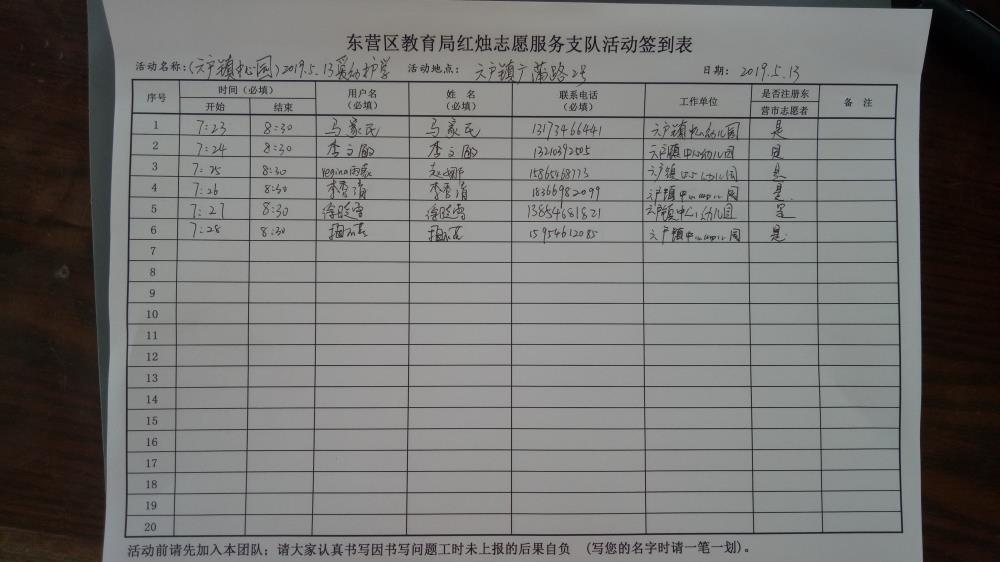 东营区教育局红烛志愿服务支队活动签到表
活动名称:(六户镇中心园)2019.5.13爱幼护学 活动地点: 六户镇广蒲路2号 日期: 2019.5.13
序号 时间(必填) 用户名(必填) 姓 名(必填) 联系电话(必填) 工作单位 是否注册东营市志愿者 备 注
开始 结束
1 7:23 8:30 马家民 马家民 13173466441 六户镇中心幼儿园 是
2 7:24 8:30 李文丽 李文丽 13210392505 六户镇中心幼儿园 是
3 7:25 8:30 赵娜 15865468773 六户镇中心幼儿园 是
4 7:26 8:30 18366982099 六户镇中心幼儿园 是
5 7:27 8:30 徐晓雪 徐晓雪 13854681821 六户镇中心幼儿园 是
6 7:28 8:30 15954612085 六户镇中心幼儿园 是
7
8
9
10
11
12
13
14
15
16
17
18
19
20
活动前请先加入本团队;请大家认真书写因书写问题工时未上报的后果自负 (写您的名字时请一笔一划)。